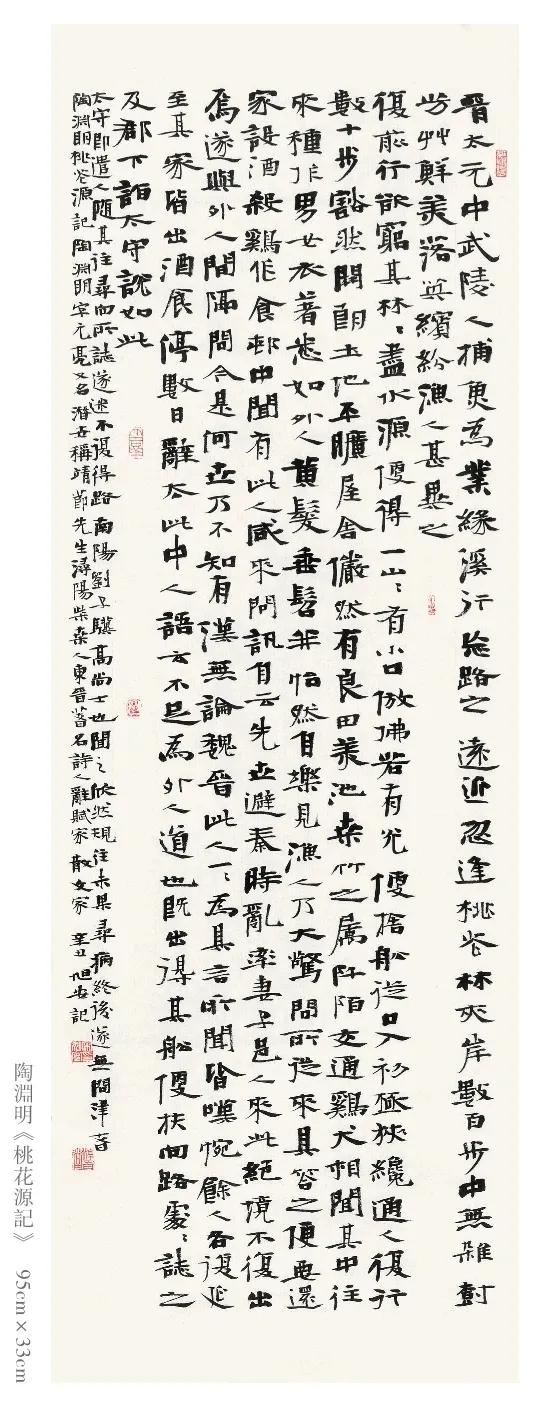 晉太元中武陵人捕魚為業緣溪行忘路之遠近忽逢桃花林夾岸數百步中無雜樹
芳艸鮮美落英繽紛漁人甚異之
復前行欲窮其林〻盡水源便得一山〻有小口仿佛若有光便捨船從口入初極狹纔通人復行
數十步豁然開朗土地平曠屋舍儼然有良田美池桑竹之屬阡陌交通鷄犬相聞其中往
來種作男女衣著悉如外人黃髮垂髫並怡然自樂見漁人乃大驚問所從來具答之便要還
家設酒殺鷄作食邨中聞有此人咸來問訊自云先世避秦時亂率妻子邑人來此絕境不復出
焉遂與外人間隔問今是何世乃不知有漢無論魏晉此人一〻為具言所聞皆嘆惋餘人各復延
至其家皆出酒食停數日辭去此中人語云不足為外人道也既出得其船便扶向路處〻誌之
及郡下詣太守說如此
太守即遣人隨其往尋向所誌遂迷不復得路南陽劉子驥高尚士也聞之欣然規往未果尋病終後遂無問津者
陶淵明桃花源記陶淵明字元亮又名潛世稱靖節先生潯陽柴桑人東晉著名詩人辭賦家散文家 辛丑旭安記
陶淵明《桃花源記》 95cm×33cm